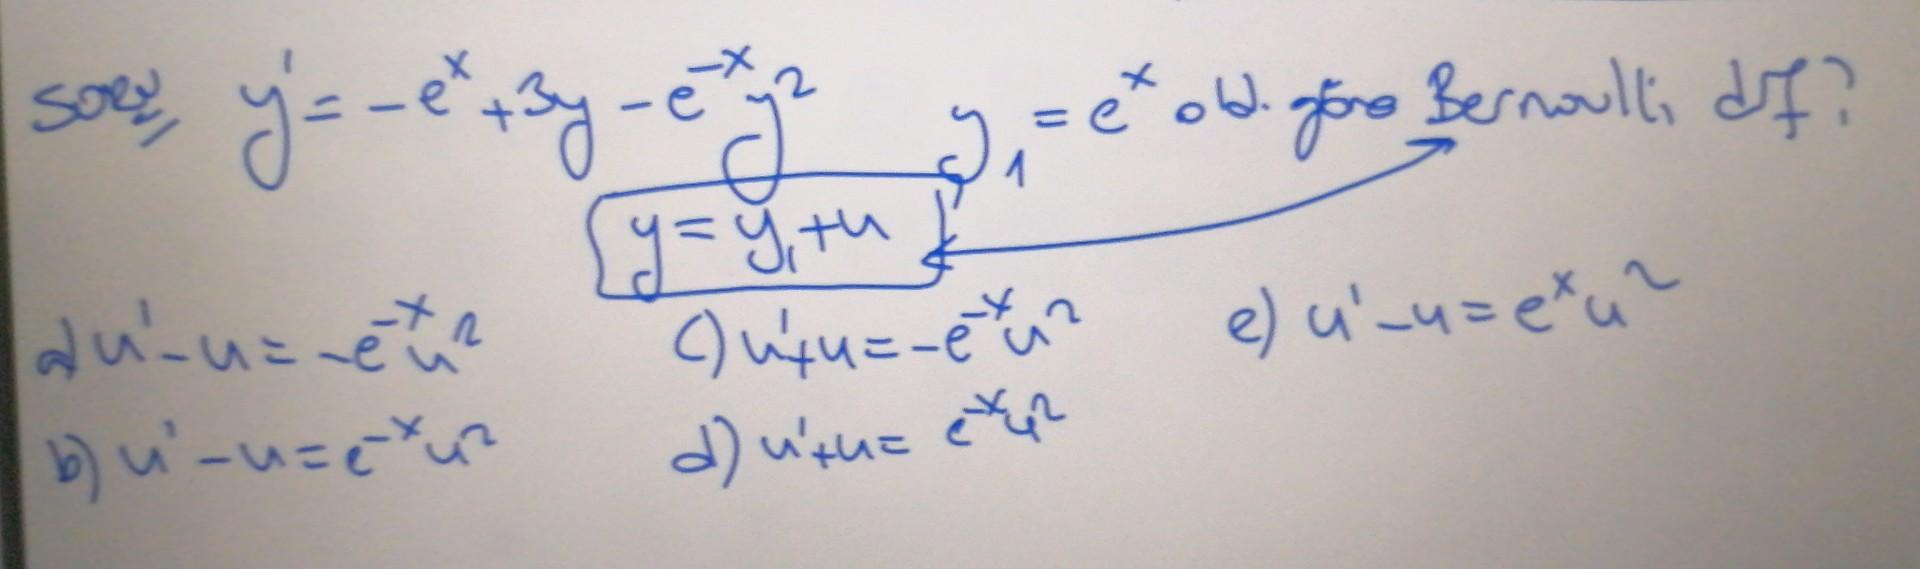 Soru, y' = -eˣ + 3y - e⁻ˣy² y₁ = eˣ old. göre Bernoulli df?
y = y₁ + u
a) u' - u = -e⁻ˣu² c) u' + u = -e⁻ˣu² e) u' - u = eˣu²
b) u' - u = e⁻ˣu² d) u' + u = e⁻ˣu²